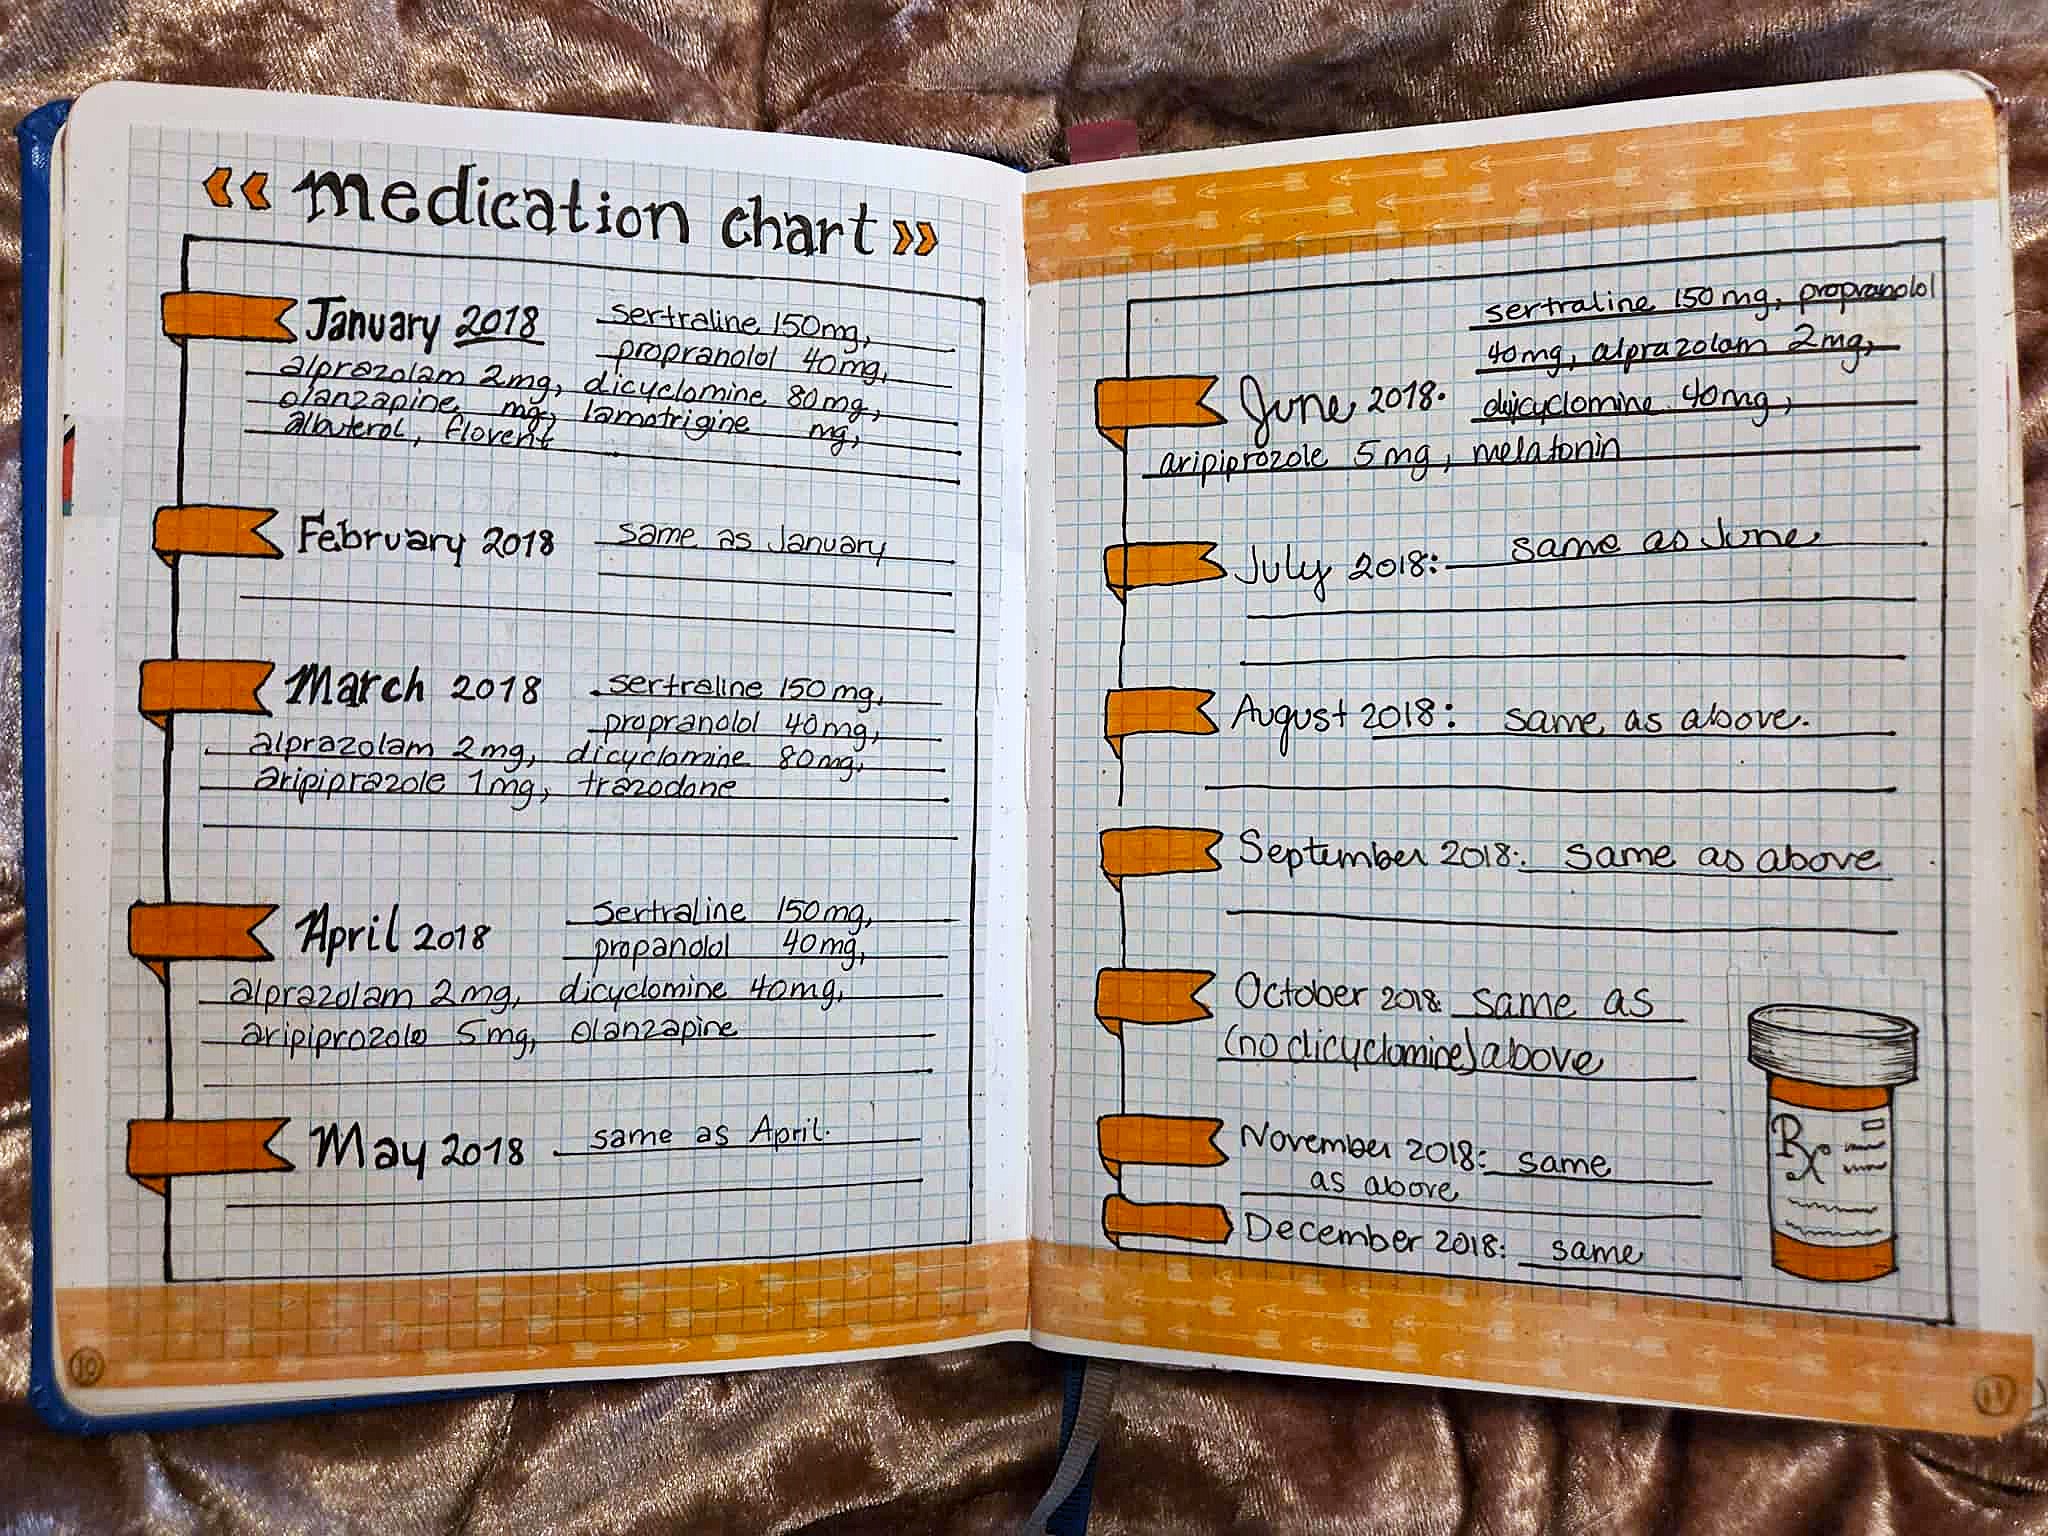 medication chart
January 2018 sertraline 150mg,
propranolol 40mg,
alprazolam 2mg, dicyclomine 80mg,
olanzapine mg, lamotrigine mg,
albuterol, flovent
February 2018 same as January
March 2018 sertraline 150mg,
propranolol 40mg,
alprazolam 2mg, dicyclomine 80mg,
aripiprazole 1mg, trazodone
April 2018 sertraline 150mg,
propanolol 40mg,
alprazolam 2mg, dicyclomine 40mg,
aripiprozole 5mg, olanzapine
May 2018 same as April.
10
sertraline 150mg, propranolol
40mg, alprazolam 2mg,
June 2018: dicyclomine 40mg,
aripiprozole 5mg, melatonin
July 2018: same as June
August 2018: same as above.
September 2018: same as above
October 2018: same as
(no dicyclomine) above
November 2018: same
as above
December 2018: same
Rx
11